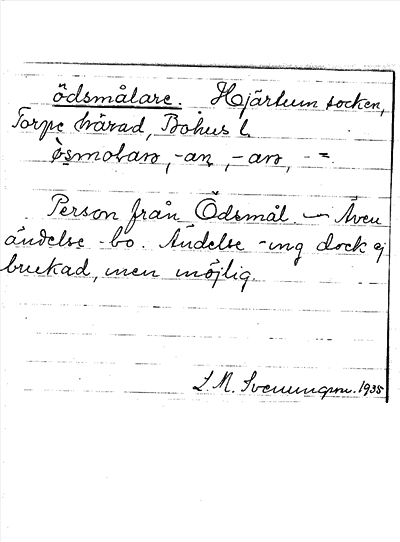 ödsmålare. Hjärtum socken,
Torpe härad, Bohus l.
-an, -arə, - =
Person från Ödsmål. — Även
ändelse -bo. Ändelse -ing dock ej
brukad, men möjlig.
S. M. Svenungsson. 1935